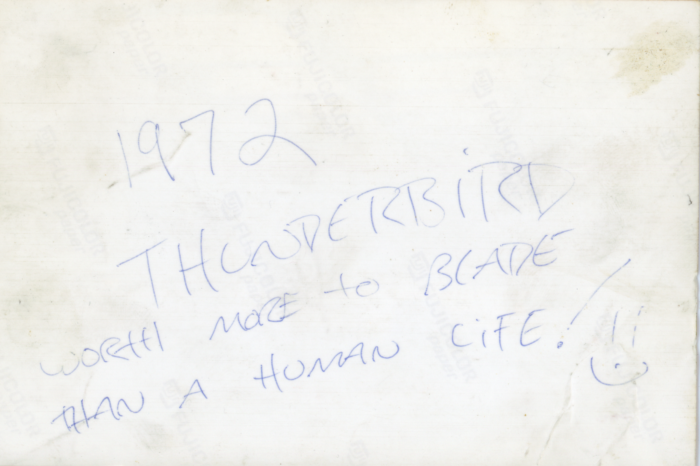 1972
THUNDERBIRD
WORTH MORE to BLADE
tHAN A HUMAN LiFE!